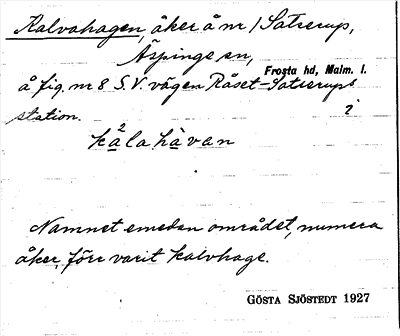 Kalvahagen, åker å nr 1 Satserup,
Äspinge sn,
Frosta hd, Malm. l.
å fig. nr 8 S.V. vägen Råset-Satserups
station.
kalahàvan
Namnet emedan området, numera
åker, förr varit kalvhage.
GÖSTA SJÖSTEDT 1927